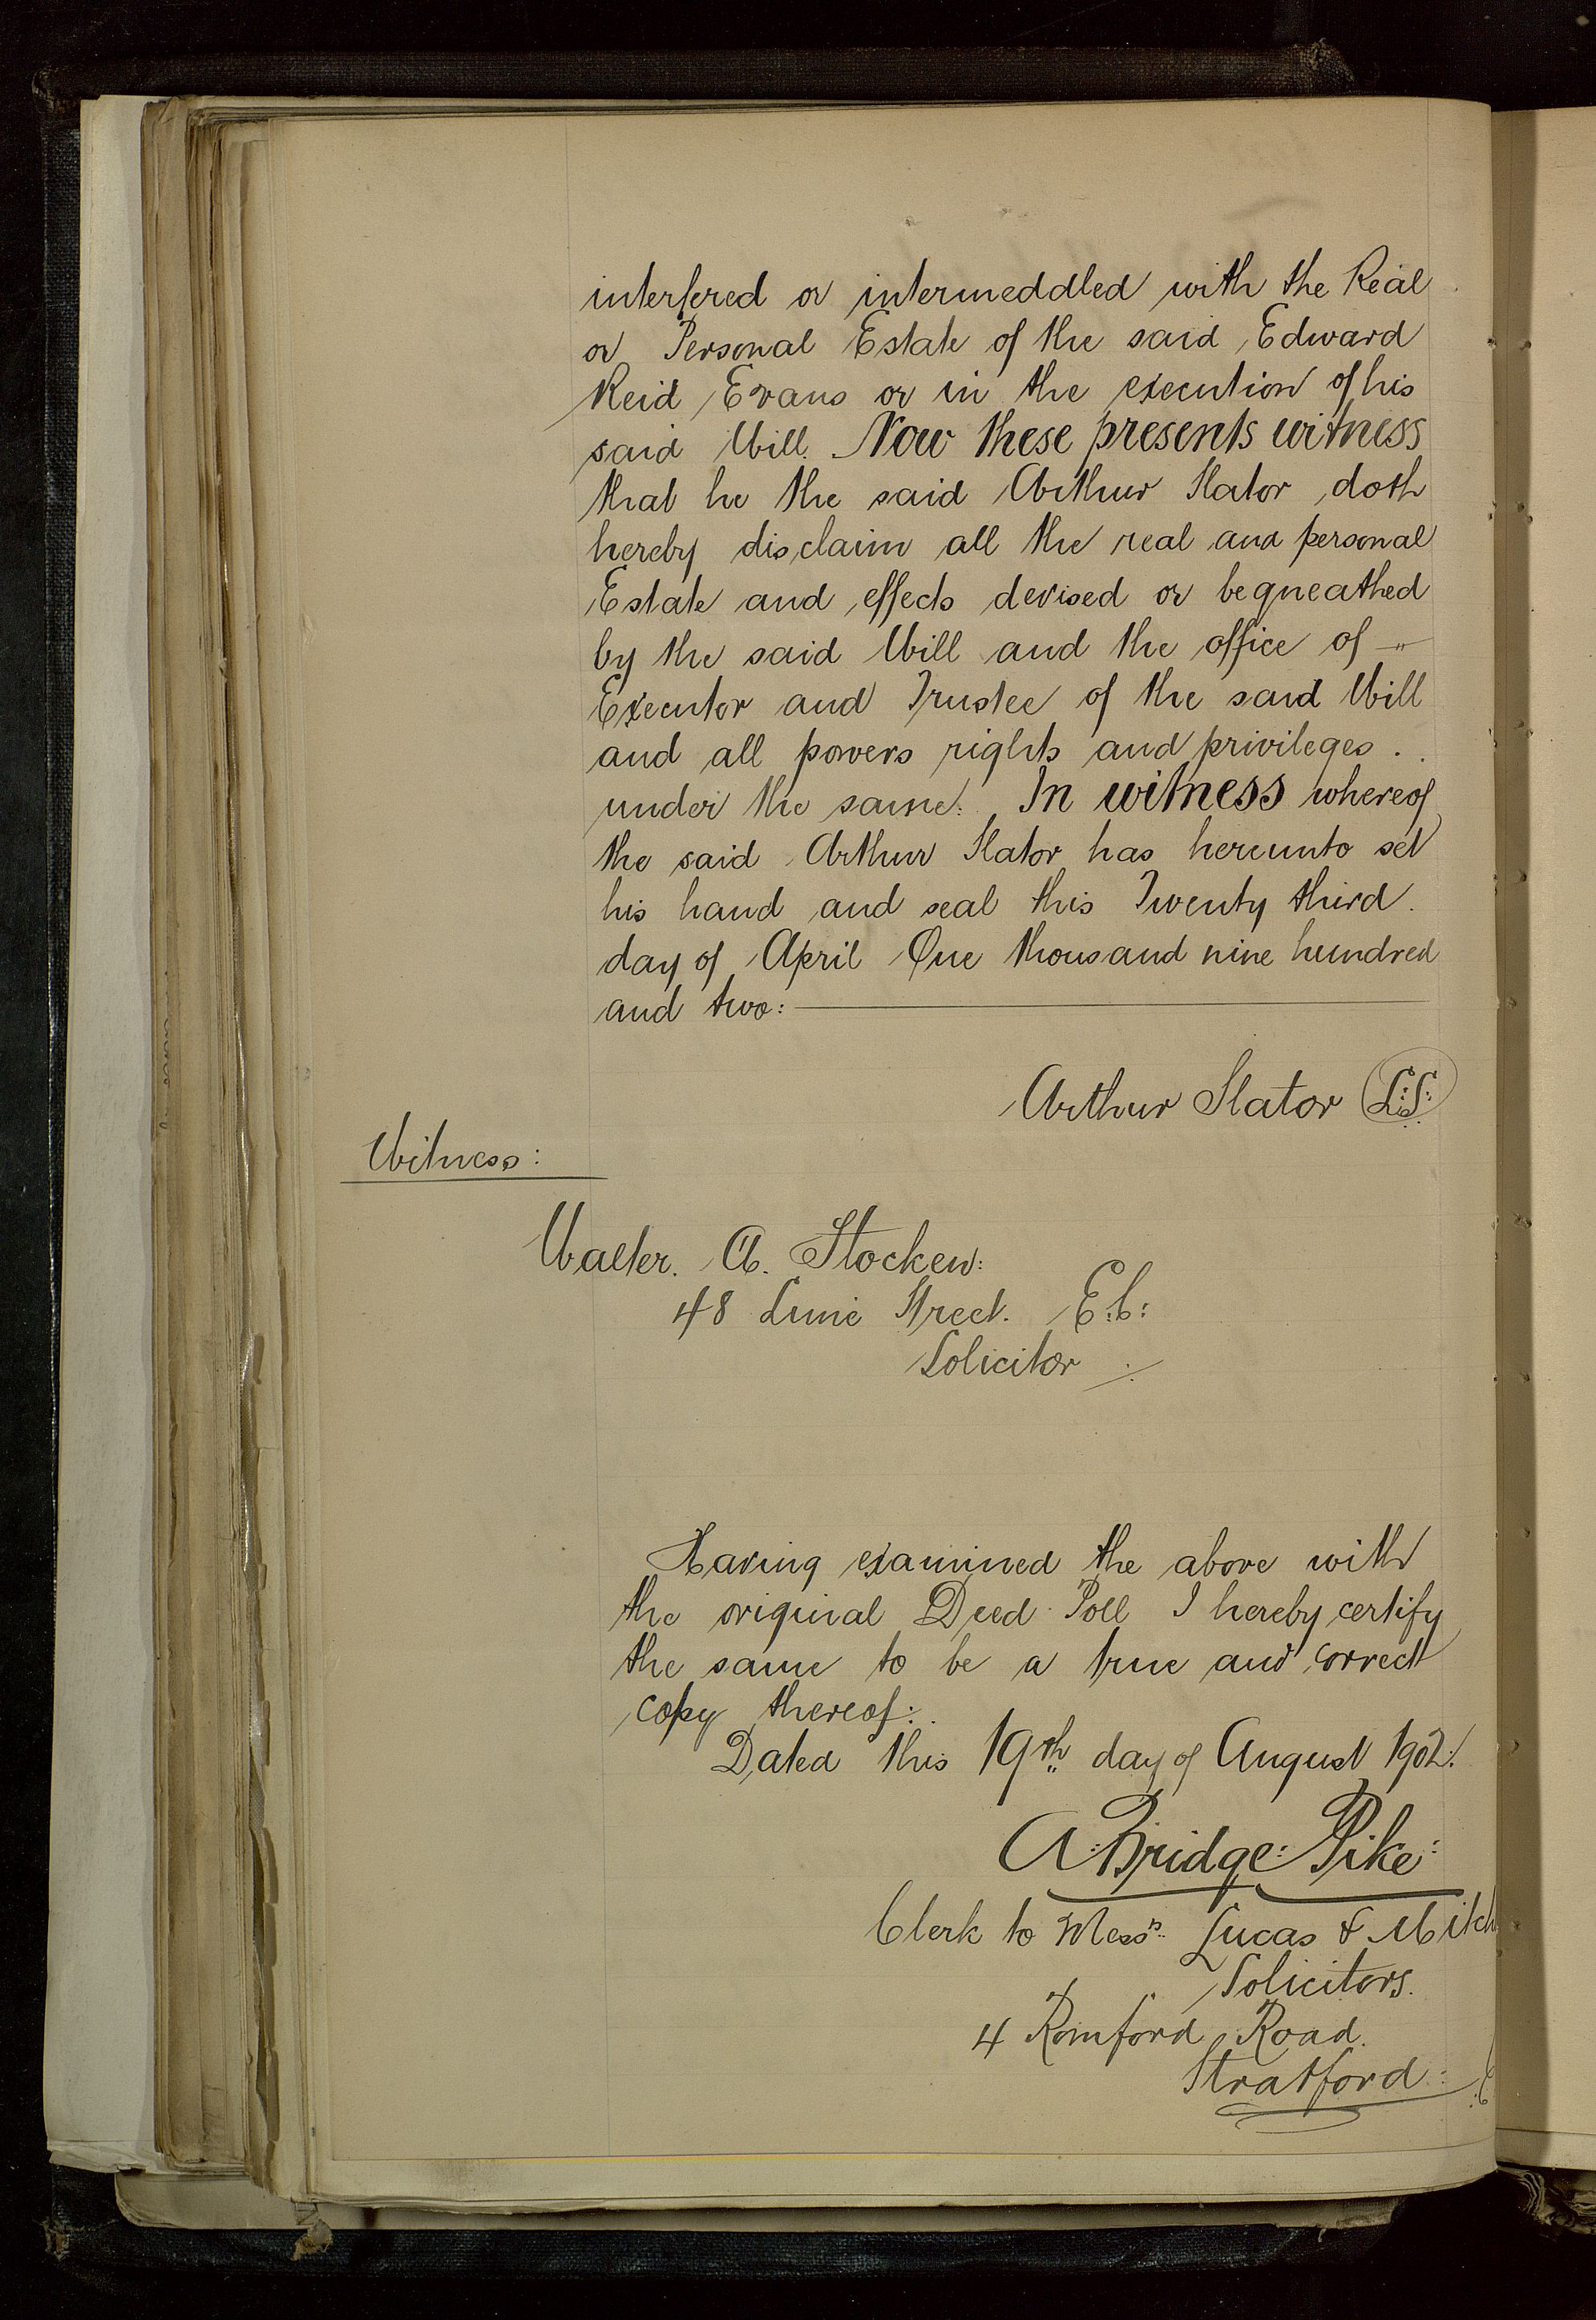 interfered or intermeddled with the Real
or Personal Estate of the said Edward
Reid Evans or in the execution of his
said Will. Now these presents witness
that he the said Arthur Slator doth
hereby disclaim all the real and personal
Estate and effects devised or bequeathed
by the said Will and the office of
Executor and Trustee of the said Will
and all powers rights and privileges.
under the same: In witness whereof
the said Arthur Slator has hereunto set
his hand and seal this Twenty third
day of April One thousand nine hundred
and two:
Arthur Slator L:S:
Witness:
Walter. A. Stocken:
48 Lime Street. E:C:
Solicitor
Having examined the above with
the original Deed Poll I hereby certify
the same to be a true and correct
copy thereof:
Dated this 19th day of August 1902:
A: Bridge: Pike:
Clerk to Messrs Lucas & Mitch
Solicitors.
4 Romford Road.
Stratford: